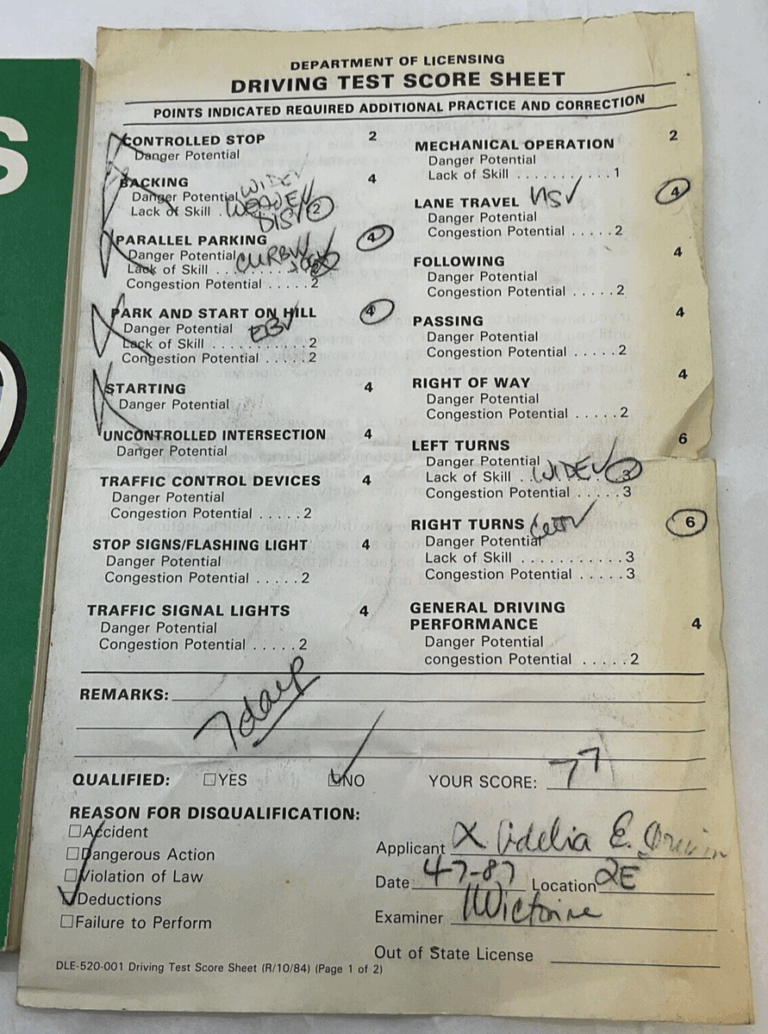 S
DEPARTMENT OF LICENSING
DRIVING TEST SCORE SHEET
POINTS INDICATED REQUIRED ADDITIONAL PRACTICE AND CORRECTION
CONTROLLED STOP 2
Danger Potential
BACKING 4
Danger Potential WIDE
Lack of Skill . 2
DIS
PARALLEL PARKING 4
Danger Potential CURB
Lack of Skill . . .
Congestion Potential . . . . . 2
PARK AND START ON HILL 4
Danger Potential EB
Lack of Skill . . . . . . . . . . . 2
Congestion Potential . . . . . 2
STARTING 4
Danger Potential
UNCONTROLLED INTERSECTION 4
Danger Potential
TRAFFIC CONTROL DEVICES 4
Danger Potential
Congestion Potential . . . . . 2
STOP SIGNS/FLASHING LIGHT 4
Danger Potential
Congestion Potential . . . . . 2
TRAFFIC SIGNAL LIGHTS 4
Danger Potential
Congestion Potential . . . . . 2
MECHANICAL OPERATION 2
Danger Potential
Lack of Skill . . . . . . . . . . . 1
LANE TRAVEL NS 4
Danger Potential
Congestion Potential . . . . . 2
FOLLOWING 4
Danger Potential
Congestion Potential . . . . . 2
PASSING 4
Danger Potential
Congestion Potential . . . . . 2
RIGHT OF WAY 4
Danger Potential
Congestion Potential . . . . . 2
LEFT TURNS 6
Danger Potential
Lack of Skill . . WIDE 3
Congestion Potential . . . . . 3
RIGHT TURNS 6
Danger Potential
Lack of Skill . . . . . . . . . . . 3
Congestion Potential . . . . . 3
GENERAL DRIVING
PERFORMANCE 4
Danger Potential
congestion Potential . . . . . 2
REMARKS:
7 days
QUALIFIED: ☐YES ☐NO YOUR SCORE: 77
REASON FOR DISQUALIFICATION:
☐Accident
☐Dangerous Action
☐Violation of Law
Deductions
☐Failure to Perform
Applicant X Adelia E.
Date 4-7-87 Location 2E
Examiner
Out of State License
DLE-520-001 Driving Test Score Sheet (R/10/84) (Page 1 of 2)